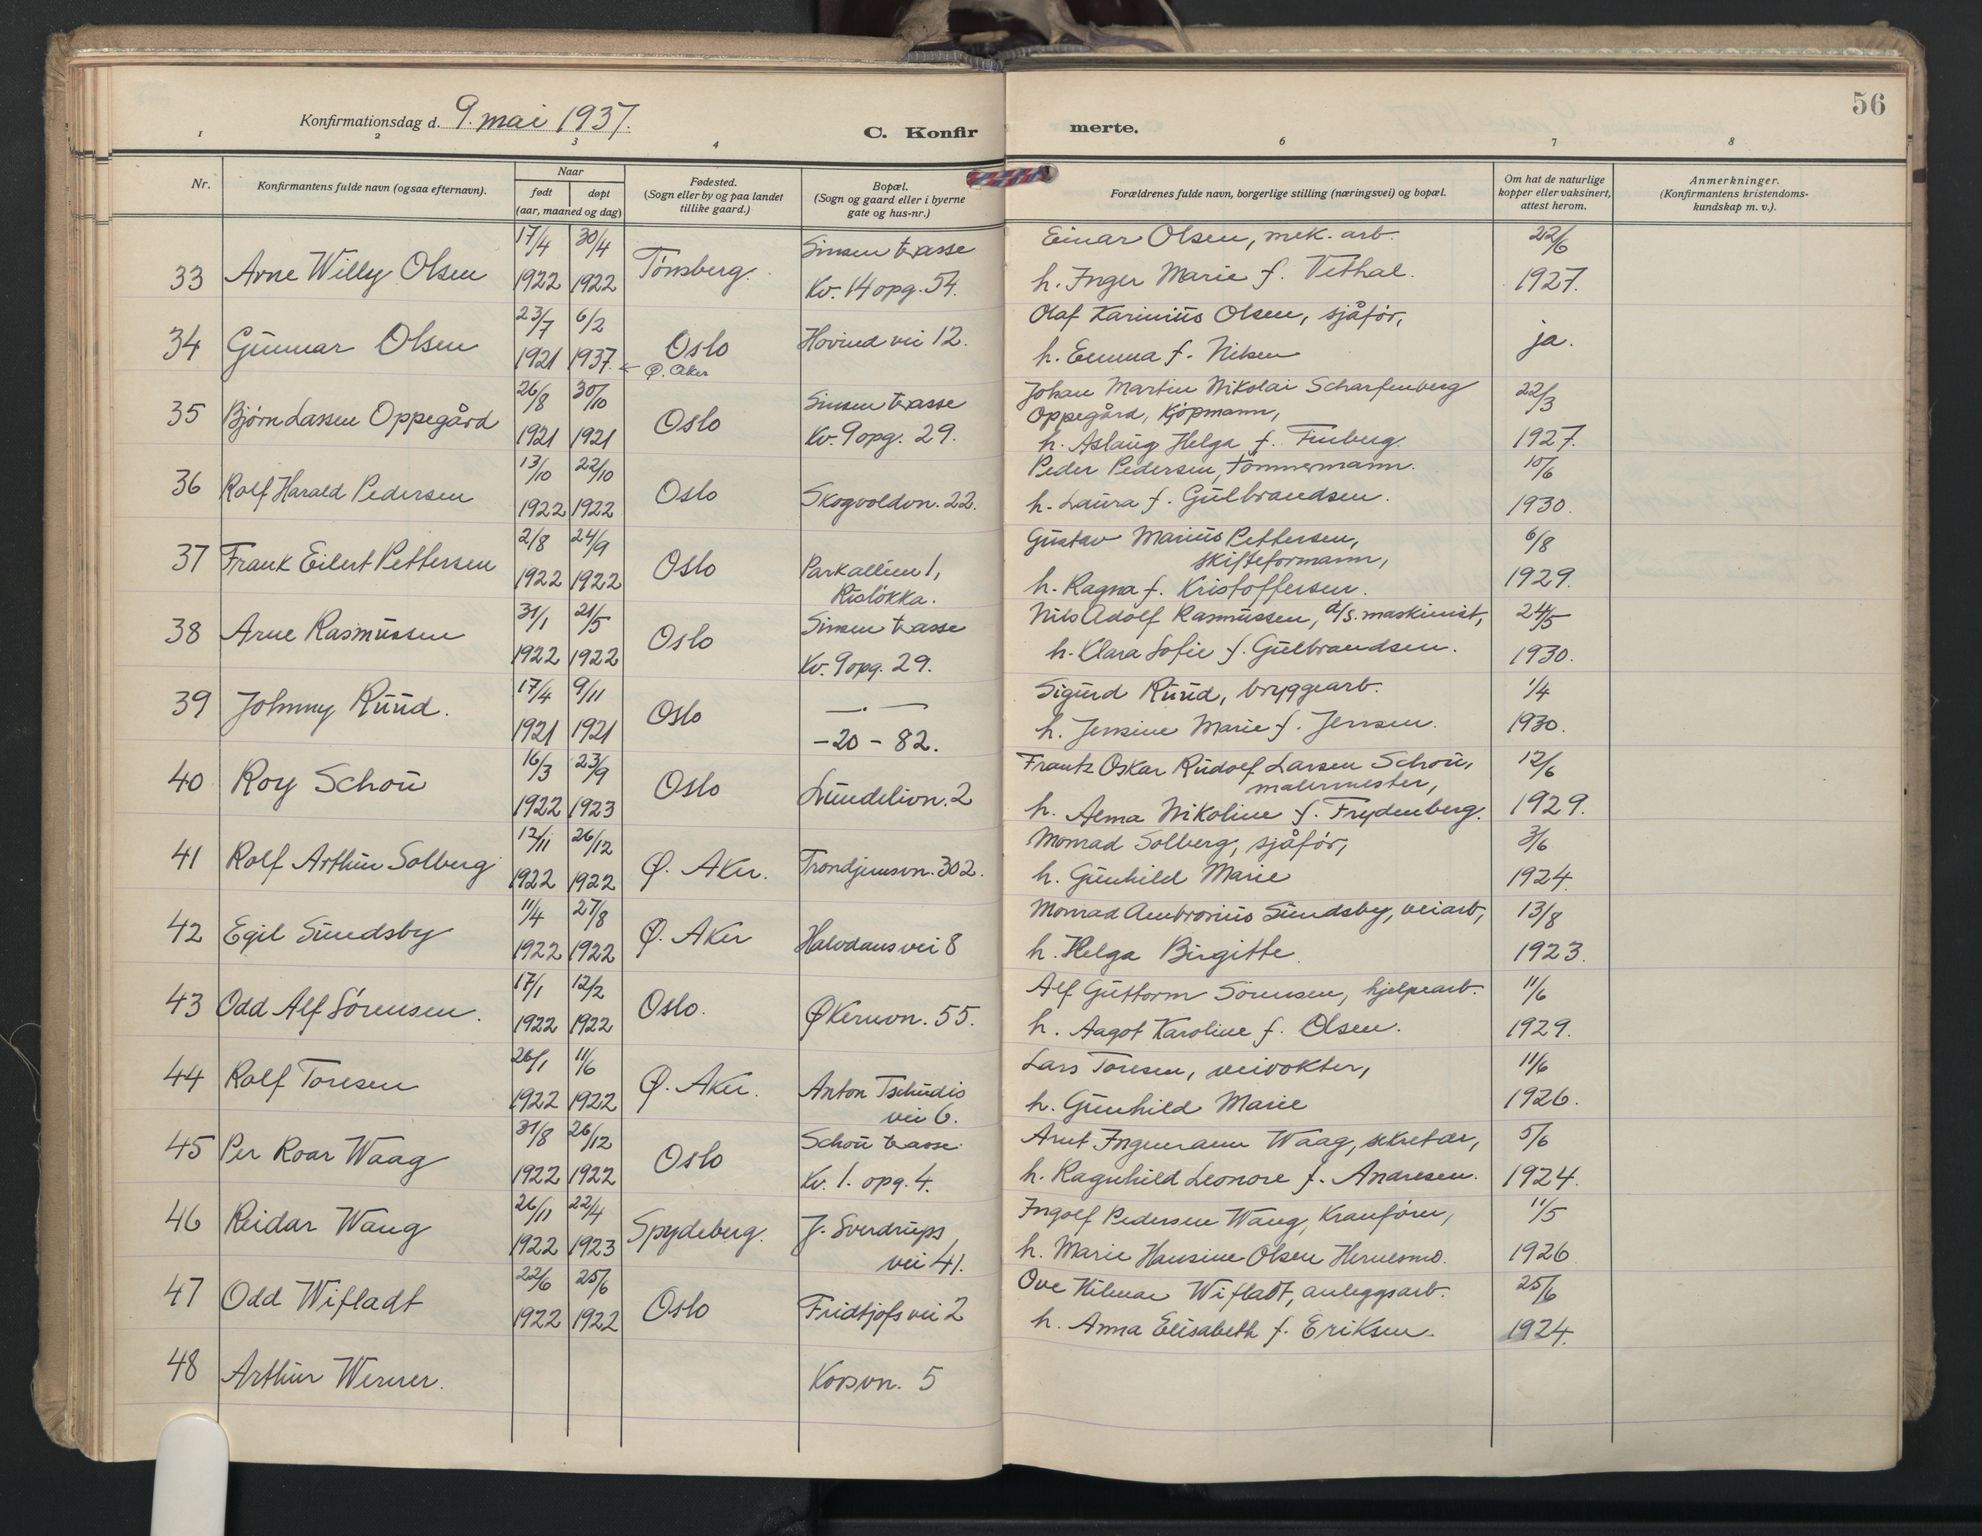 56
Konfirmationsdag d. 9. mai 1937.
C. Konfir merte.
1 2 3 4 6 7 8
Nr.
Konfirmantens fulde navn (ogsaa efternavn).
Naar
født døpt
(aar, maaned og dag)
Fødested.
(Sogn eller by og paa landet
tillike gaard.)
Bopæl.
(Sogn og gaard eller i byerne
gate og hus-nr.)
Forældrenes fulde navn, borgerlige stilling (næringsvei) og bopæl.
Om hat de naturlige
kopper eller vaksinert,
attest herom.
Anmerkninger.
(Konfirmantens kristendoms-
kundskap m. v.).
17/4 30/4 Sinsen trasse Einar Olsen, mek. arb. 22/6
33 Arne Willy Olsen 1922 1922 Tønsberg. Kv. 14 opg. 54. h. Inger Marie f. Vethal. 1927.
23/7 6/2 Olaf Karinius Olsen, sjåfør,
34 Gunnar Olsen 1921 1937. Oslo Hovind vei 12. h. Emma f. Nilsen ja.
← Ø. Aker
26/8 30/10 Sinsen trasse Johan Martin Nikolai Scharfenberg 22/3
35 Bjørn Lassen Oppegård Oslo Oppegård, Kjøpmann,
1921 1921 Kv. 9 opg. 29. h. Aslaug Helga f. 1927.
13/10 22/10 Peder Pedersen, tømmermann. 10/6
36 Rolf Harald Pedersen 1922 1922 Oslo Skogvoldvn. 22. h. Laura f. Gulbrandsen. 1930.
2/8 24/9 Gustav Marius Pettersen, 6/8
37 Frank Eilert Pettersen Oslo Parkalléen 1, skifteformann,
1922 1922 Risløkka. h. Ragna f. Kristoffersen. 1929.
31/1 21/5 Sinsen trasse Nils Adolf Rasmussen, d/s. maskinist, 24/5
38 Arne Rasmussen 1922 1922 Oslo Kv. 9 opg. 29. h. Klara Sofie f. Gulbrandsen. 1930.
17/4 9/11 — . — Sigurd Ruud, bryggearb. 1/4
39 Johnny Ruud. 1921 1921 Oslo -20- 82. h. Jensine Marie f. Jensen. 1930.
16/3 23/9 Frantz Oskar Rudolf Larsen Schou, 12/6
40 Roy Schou Oslo Lundelivn. 2 malermester,
1922 1923 h. Alma Nikoline f. Frydenberg. 1929.
12/11 26/12 Monrad Solberg, sjåfør, 3/6
41 Rolf Arthur Solberg 1922 1922 Ø. Aker. Trondjemsvn. 302. h. Gunhild Marie 1924.
11/4 27/8 Monrad Ambrosius Sundsby, veiarb, 13/8
42 Egil Sundsby 1922 1922 Ø. Aker Halvdans vei 8 h. Helga Birgitte. 1923.
17/1 12/2 Alf Guttorm Sørensen, hjelpearb. 11/6
43 Odd Alf Sørensen. 1922 1922 Oslo. Økernvn. 55. h. Aagot Karoline f. Olsen. 1929.
26/1 11/6 Lars Toresen, veivokter, 11/6
44 Rolf Toresen 1922 1922 Ø. Aker. Anton Tschudis h. Gunhild Marie 1926.
vei 6.
31/8 26/12 Schou trasse Arnt Ingemann Waag, sekretær, 5/6
45 Per Roar Waag 1922 1922 Oslo Kv. 1. opg. 4. h. Ragnhild Leonore f. Andresen. 1924.
26/11 22/4 Ingolf Pedersen Wang, Kranfører, 11/5
46 Reidar Wang 1922 1923 Spydeberg. J. Sverdrups h. Marie Hansine Olsen 1926
vei 41.
22/6 25/6 Ove Hilmar Wifladt, anleggsarb. 25/6
47 Odd Wifladt 1922 1922 Oslo Fridtjofs vei 2 h. Anna Elisabeth f. Eriksen. 1924.
48 Arthur Werner. Korsvn. 5